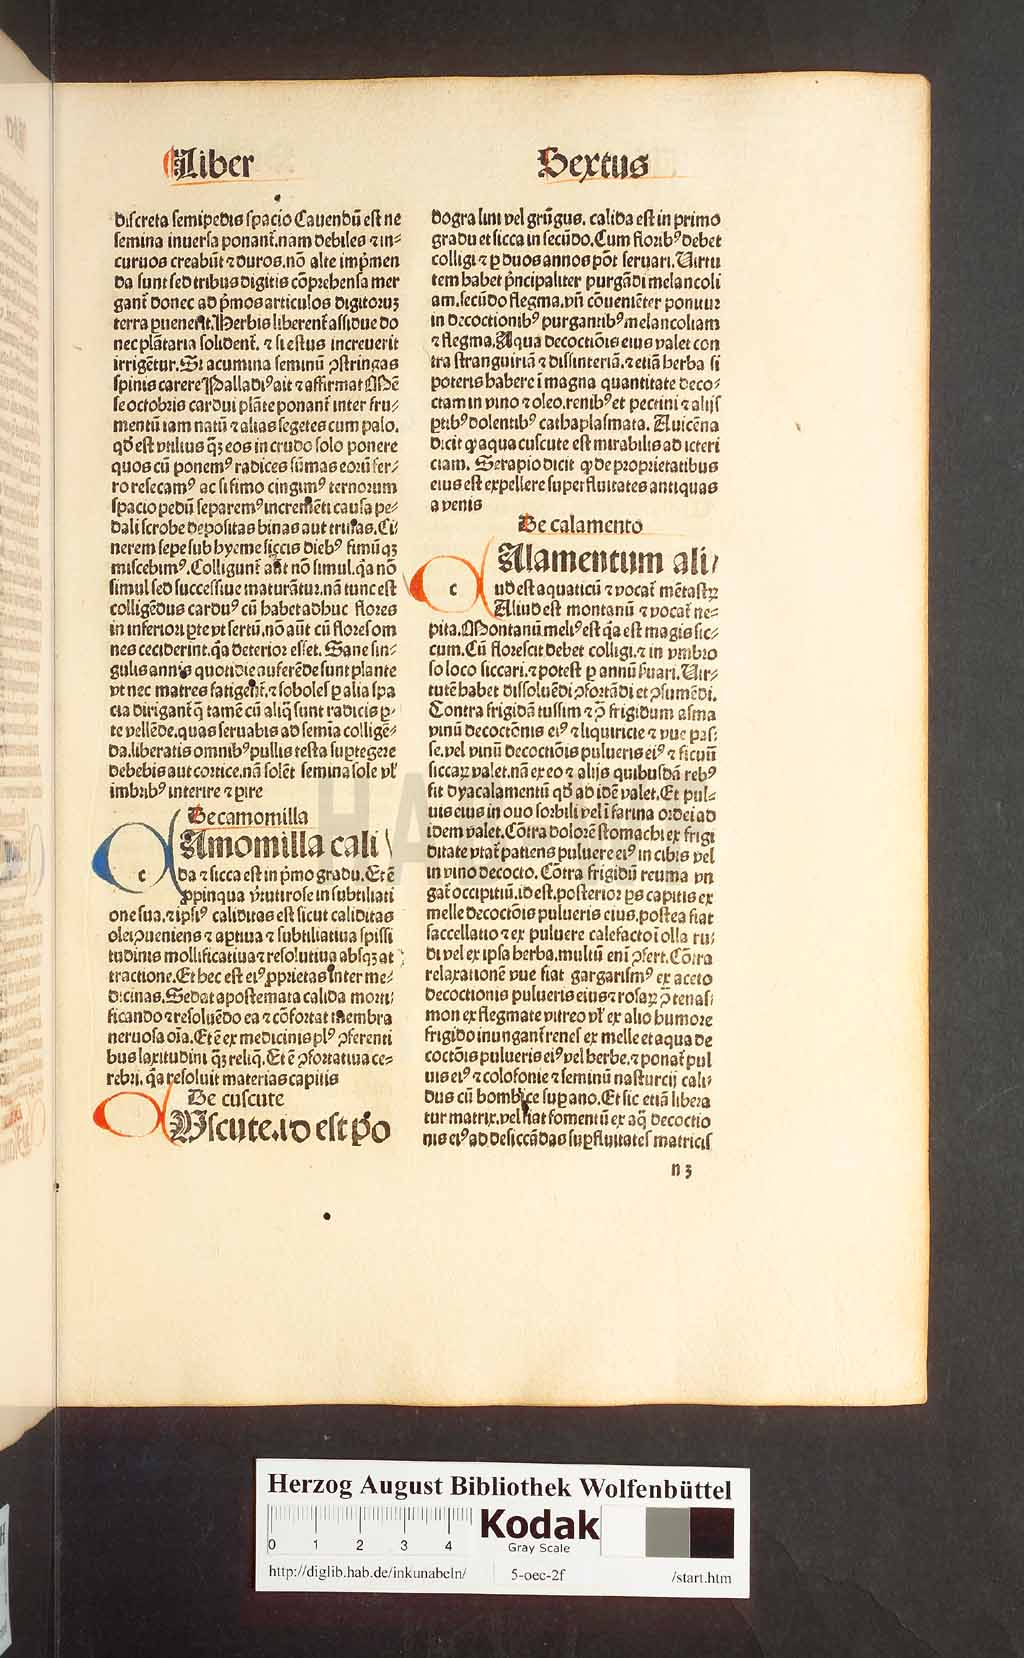 Liber
Sextus
discreta semipedis spacio Cauendū est ne
semina inuersa ponant᷑.nam debiles ⁊ in⸗
curuos creabūt ⁊ duros.nō alte imp̄men
da sunt sed tribus digitis cōprehensa mer
gant᷑ donec ad p̄mos articulos digitoruꝫ
terra ꝑueneꝛit.Herbis liberent᷑ assidue do
nec plātaria solident᷑. ⁊ si estus increuerit
irrigētur.Si acumina seminū ꝯstringas
spinis carere Palladiꝰ ait ⁊ affirmat Mē
se octobris cardui plāte ponant᷑ inter fru⸗
mentū iam natū ⁊ alias segetes cum palo.
qd̓ est vtilius qꝫ eos in crudo solo ponere
quos cū ponemꝰ radices sūmas eorū fer⸗
ro resecamꝰ ac sifimo cingimꝰ ternorum
spacio pedū separemꝰ incremēti causa pe⸗
dali scrobe depositas binas aut trinas.Ci
nerem sepe sub hyeme siccis diebꝰ fimū qꝫ
miscebimꝰ.Colligunt᷑ aūt nō simul.q̄a nō
simul sed successiue maturātur.nā tunc est
colligēdus carduꝰ cū habet adhuc flores
in inferiori ꝑte vt sertū.nō aūt cū flores om
nes ceciderint.q̄a deterior esset. Sane sin⸗
gulis annis quotidie auferēde sunt plante
vt nec matres fatigent᷑.⁊ soboles ꝑ alia spa
cia dirigant᷑ q̄ tamē cū aliq̄ sunt radicis ꝑ⸗
te vellēde.quas seruabis ad semīa colligē⸗
da.liberatis omnibꝰ pullis testa suꝑtegere
debebis aut cortice.nā solēt semina sole vl̓
imbribꝰ interire ⁊ ꝑire
De camomilla
c
Amomilla cali
da ⁊ sicca est in p̄mo gradu. Et ē
ꝓpinqua v̓tuti rose in subtiliati
one sua.⁊ ipsiꝰ caliditas est sicut caliditas
olei ꝯueniens ⁊ aꝑtiua ⁊ subtiliatiua spissi
tudinis mollificatiua ⁊ resolutiua absqꝫ at
tractione.Et hec est eiꝰ ꝓprietas inter me⸗
dicinas.Sedat apostemata calida morti⸗
ficando ⁊ resoluēdo ea ⁊ cōfortat membra
neruosa oīa.Et ē ex medicinis plꝰ ꝯferenti
bus laxitudini qꝫ reliq̄. Et ē ꝯfortatiua ce⸗
rebri. q̄a resoluit materias capitis
De cuscute
Vscute.id est po
dogra lini vel grūgus. calida est in primo
gradu et sicca in secūdo.Cum floribꝰ debet
colligi ⁊ ꝑ duos annos pōt seruari.Virtu
tem habet p̄ncipaliter purgādi melancoli
am.secūdo flegma.vn̄ cōueniēter ponitur
in decoctionibꝰ purgantibꝰ melancoliam
⁊ flegma.Aqua decoctiōis eius valet con
tra stranguiriā ⁊ dissinteriā.⁊ etiā herba si
poteris habere ī magna quantitate deco⸗
ctam in vino ⁊ oleo.renibꝰ et pectini ⁊ alijs
ꝑtibꝰ dolentibꝰ cathaplasmata. Auicēna
dicit ꝙ aqua cuscute est mirabilis ad icteri
ciam. Serapio dicit ꝙ de proprietatibus
eius est expellere superfluitates antiquas
a venis
De calamento
c
Alamentum ali⸗
ud est aquaticū ⁊ vocat᷑ mētastꝝ
Aliud est montanū ⁊ vocat᷑ ne⸗
pita.Montanū meliꝰ est q̄a est magis sic⸗
cum.Cū florescit debet colligi.⁊ in vmbro
so loco siccari.⁊ potest ꝑ annū s̓uari. Vir⸗
tutē habet dissoluēdi ꝯfortādi et ꝯsumēdi.
Contra frigidā tussim ⁊ ꝯ̄ frigidum asma
vinū decoctōnis eiꝰ ⁊ liquiricie ⁊ vue pas⸗
se.vel vinū decoctiōis pulueris eiꝰ ⁊ ficuū
siccaꝝ valet.nā ex eo ⁊ alijs quibusdā rebꝰ
fit dyacalamentū qd̓ ad idē valet.Et pul⸗
uis eius in ouo sorbili vel ī farina ordei ad
idem valet.Cōtra dolorē stomachi ex frigi
ditate vtat᷑ patiens puluere eiꝰ in cibis vel
in vino decocto. Cōtra frigidū reuma vn
gat᷑ occipitiū.id est.posterior ꝑs capitis ex
melle decoctōis pulueris eius.postea fiat
saccellatio ⁊ ex puluere calefacto ī olla ru⸗
di vel ex ipsa herba.multū eni ꝯfert.Cōtra
relaxationē vue fiat gargarismꝰ ex aceto
decoctionis pulueris eius ⁊ rosaꝝ ꝯ̄ tenas⸗
mon ex flegmate vitreo vl̓ ex alio humore
frigido inungant᷑ renes ex melle et aqua de
coctōis pulueris eiꝰ vel herbe.⁊ ponat᷑ pul
uis eiꝰ ⁊ colofonie ⁊ seminū nasturcij cali⸗
dus cū bombice suꝑ ano.Et sic etiā libera
tur matrix.vel fiat fomentū ex aq̄ decoctio
nis eiꝰ ad desiccādas suꝑfluitates matricis
n 3
HAB
Herzog August Bibliothek Wolfenbüttel
0 1 2 3 4
Kodak
Gray Scale
http://diglib.hab.de/inkunabeln/
5-oec-2f
/start.htm